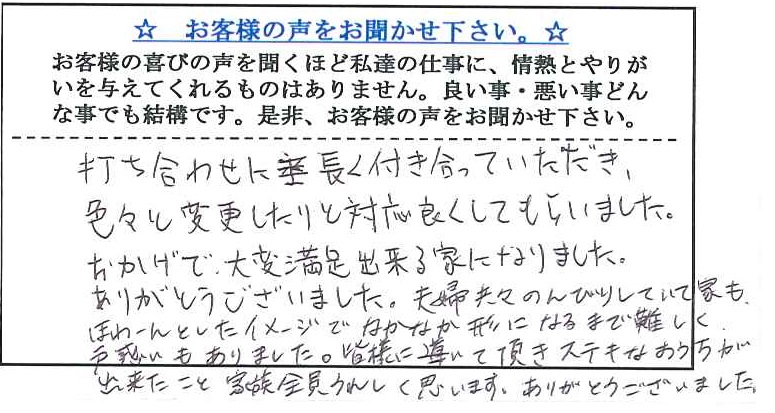 ☆ お客様の声をお聞かせ下さい。☆
お客様の喜びの声を聞くほど私達の仕事に、情熱とやりが
いを与えてくれるものはありません。良い事・悪い事どん
な事でも結構です。是非、お客様の声をお聞かせ下さい。
打ち合わせに長く付き合っていただき、
色々と変更したりと対応良くしてもらいました。
おかげで、大変満足出来る家になりました。
ありがとうございました。夫婦共々のんびりしていて家も、
ほわ〜んとしたイメージでなかなか形になるまで難しく、
戸惑いもありました。皆様に導いて頂きステキなおうちが
出来たこと家族全員うれしく思います。ありがとうございました。